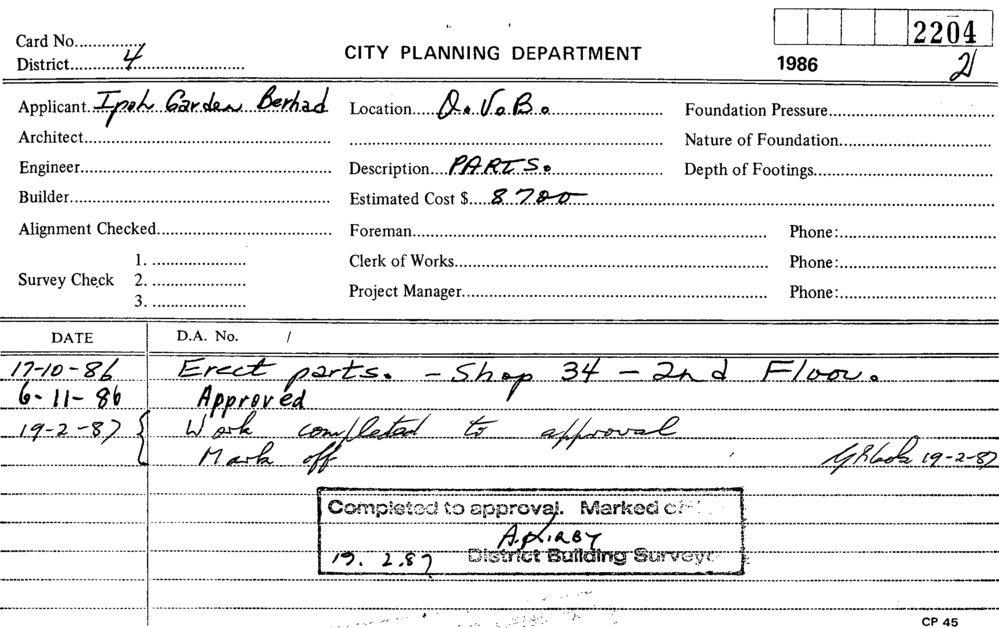 Card No.
2204
District 4
CITY PLANNING DEPARTMENT
1986
2
Applicant Ipoh Garden Berhad
Location Q.V.B.
Foundation Pressure
Architect
Nature of Foundation
Engineer
Description PARTS.
Depth of Footings
Builder
Estimated Cost $ 8700
Alignment Checked
Foreman
Phone:
Survey Check
1.
2.
3.
Clerk of Works
Phone:
Project Manager
Phone:
DATE
D.A. No. /
17-10-86 Erect parts. - Shop 34 - 2nd Floor.
6-11-86 Approved
19-2-87 Work completed to approval
Mark off 19-2-87
Completed to approval. Marked
19. 2.87 District Building Surveyor
CP 45